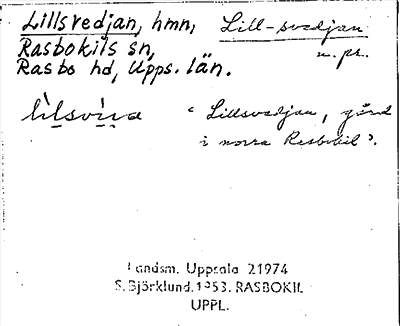 Lillsvedjan, hmn, Lill-svedjan
Rasbokils sn, n. pr.
Rasbo hd, Upps. län.
"Lillsvedjan, gård
i norra Rasbokil".
Landsm. Uppsala 21974
S. Björklund. 1953. RASBOKIL
UPPL.